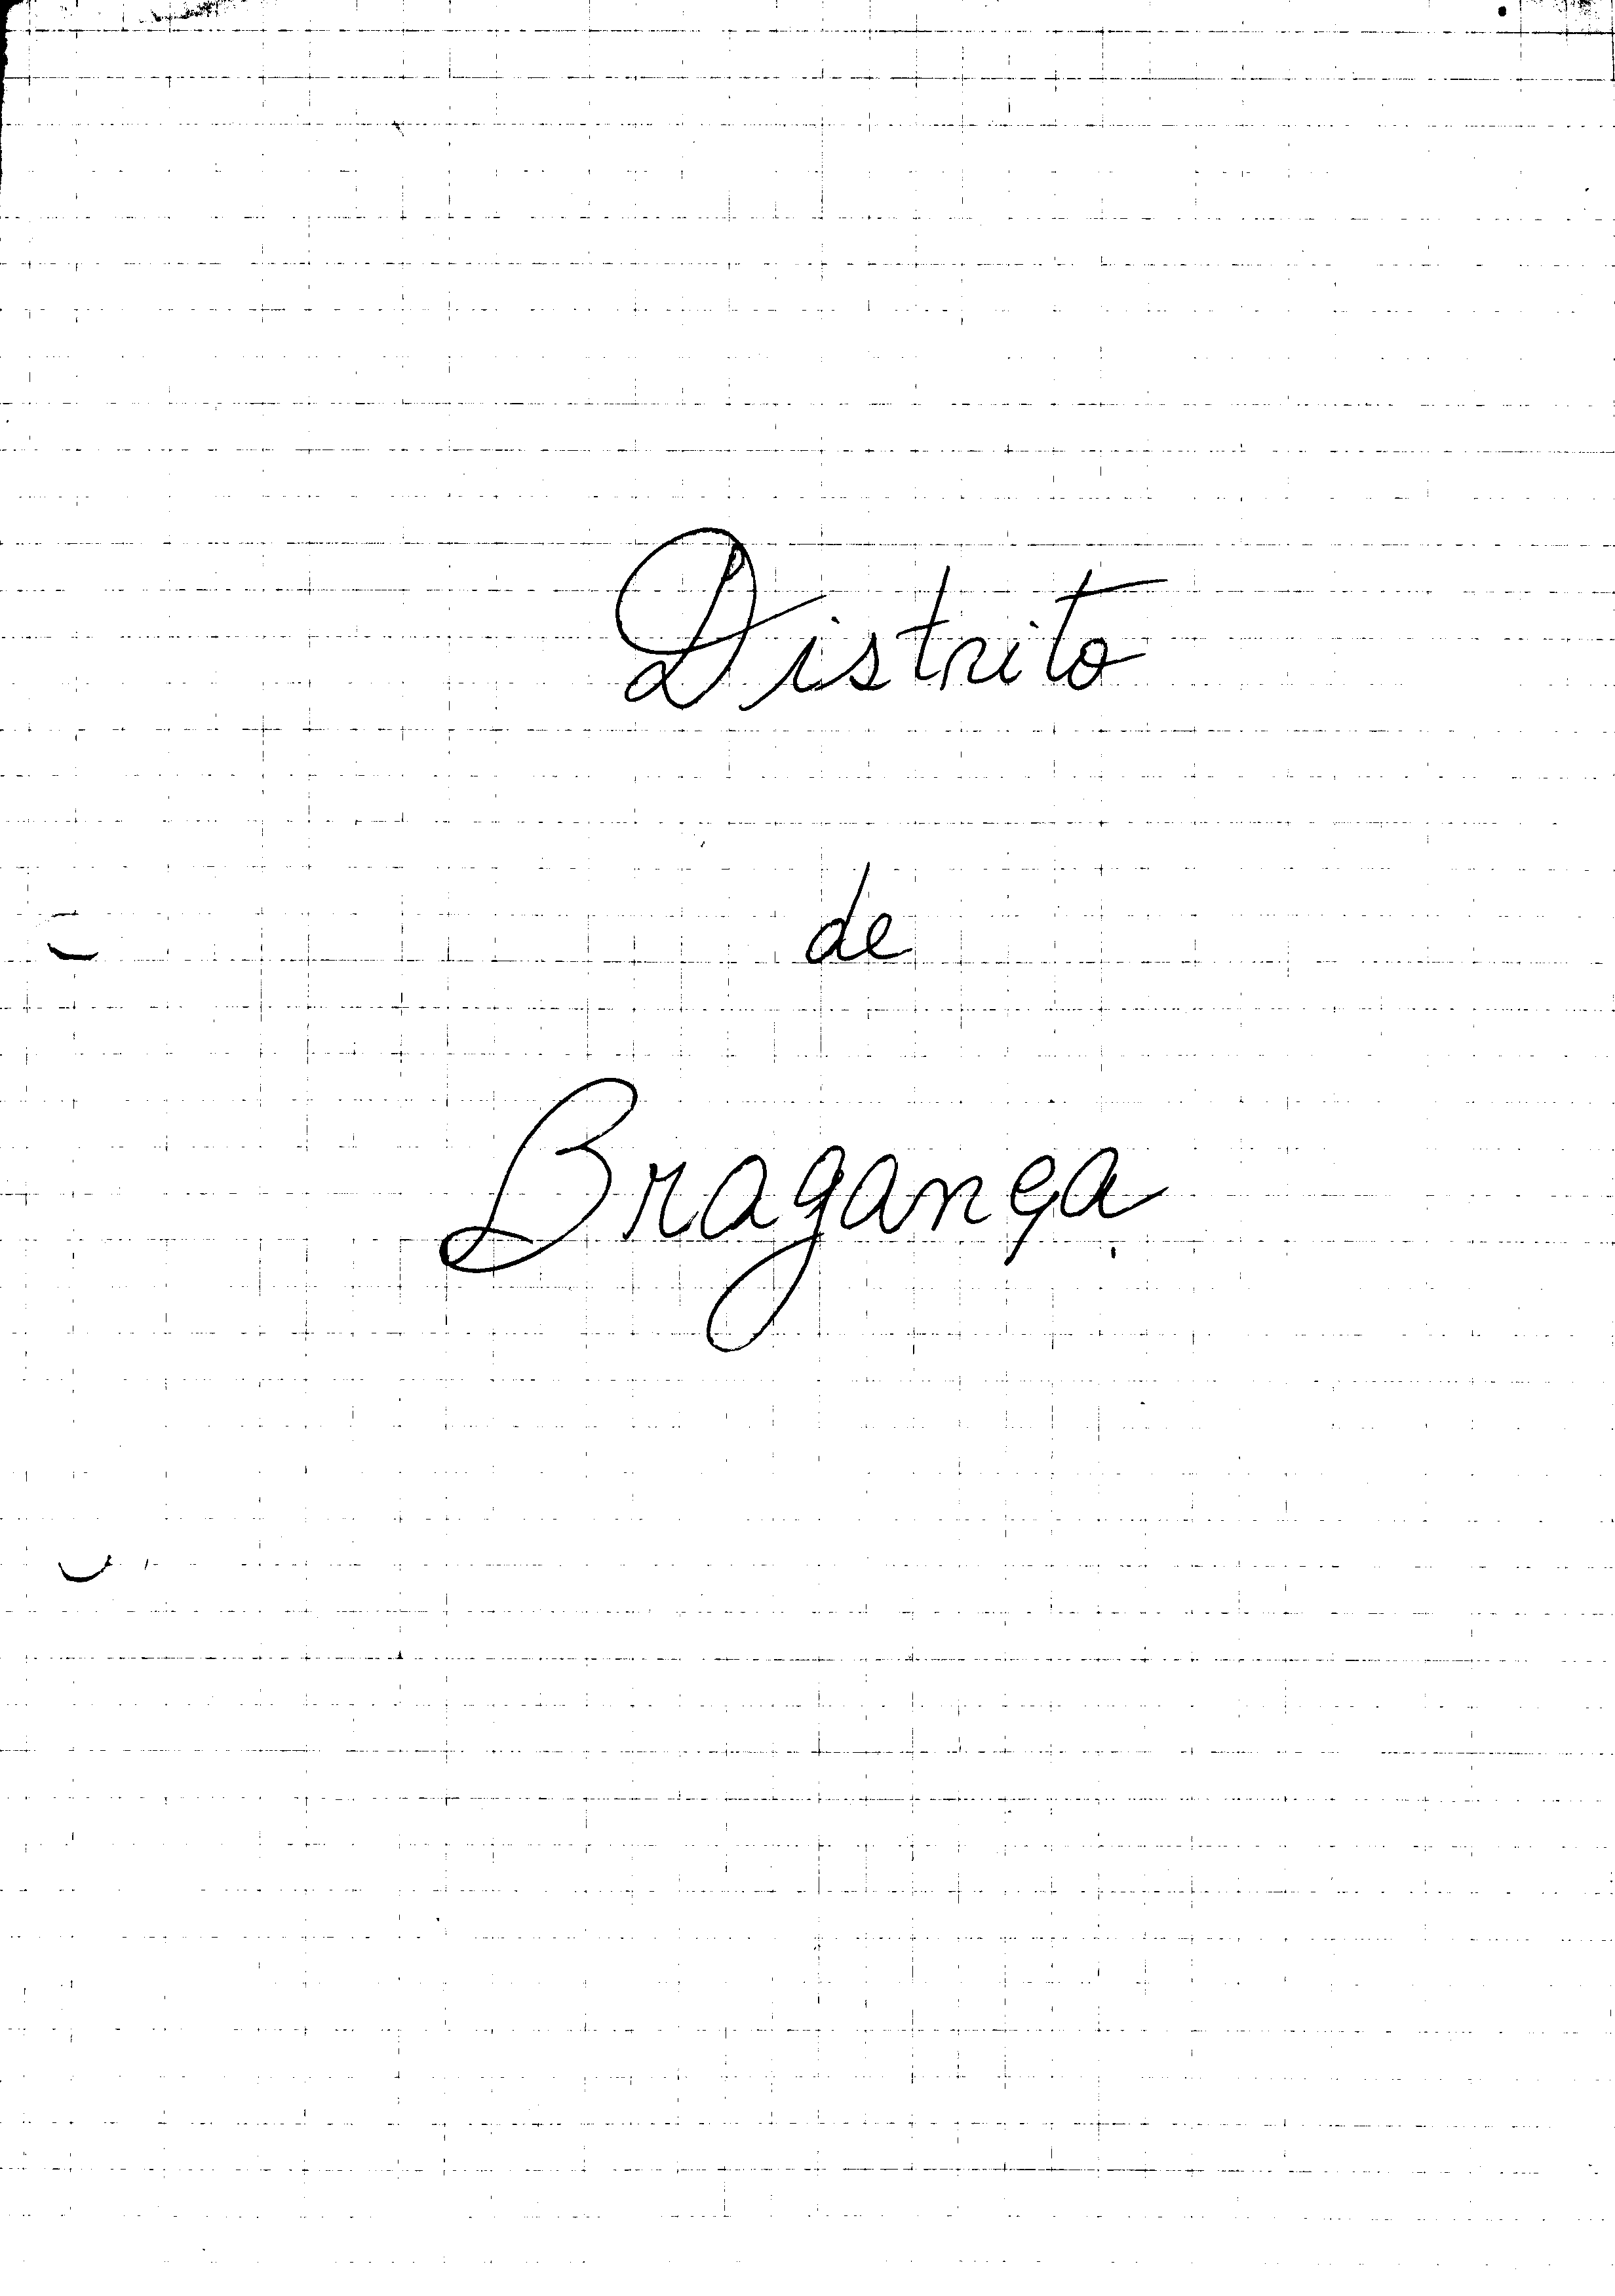 Distrito
de
Bragança